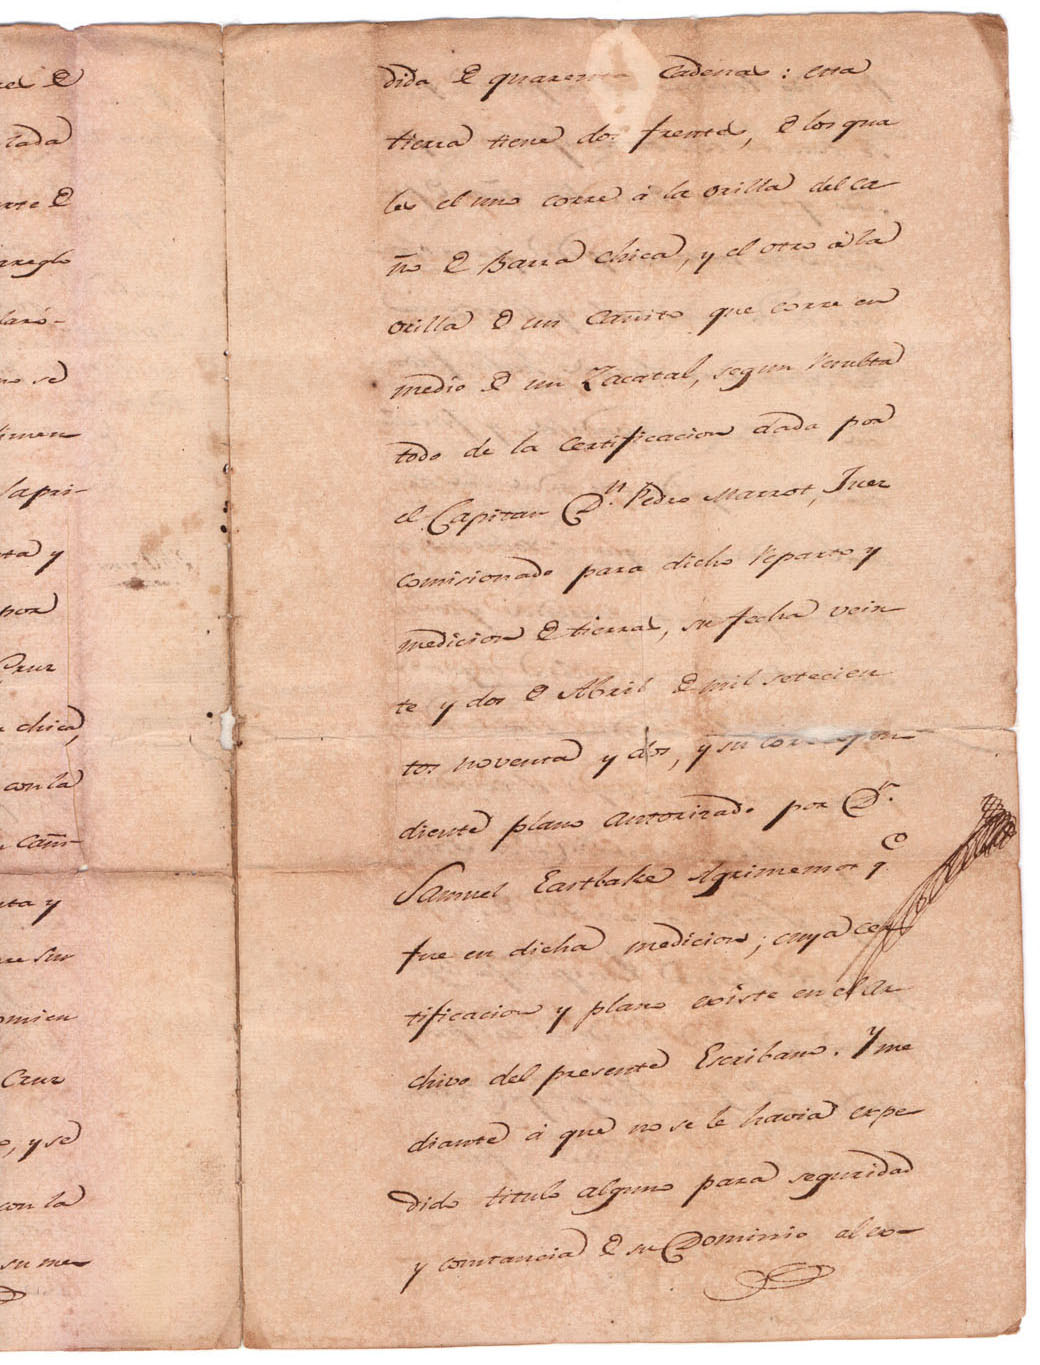 rel de
lada
rte de
arreglo
laró-
no se
dimen
la pri-
ta y
por
Cruz
chica,
con la
cañi-
nta y
re su
omien
Cruz
o, y se
con la
su me-
dida de quarenta Cadenas: esta
tierra tiene dos frentes, de los qua
les el uno corre á la orilla del ca-
ño de Barra chica, y el otro á la
orilla de un Cañito que corre en
medio de un Zacatal, segun resulta
todo de la certificacion dada por
el Capitan Dn. Pedro Marrot, Juez
comisionado para dicho reparto y
medicion de tierras, su fecha vein-
te y dos de Abril de mil setecien
tos noventa y dos, y su correspon-
diente plano autorizado por Dn.
Samuel Eastbake Agrimensor qe.
fue en dicha medicion; cuya cer
tificacion y plano existe en el ar-
chivo del presente Escribano. Y me
diante á que no se le havia expe-
dido titulo alguno para seguridad
y constancia de su Dominio al ex-